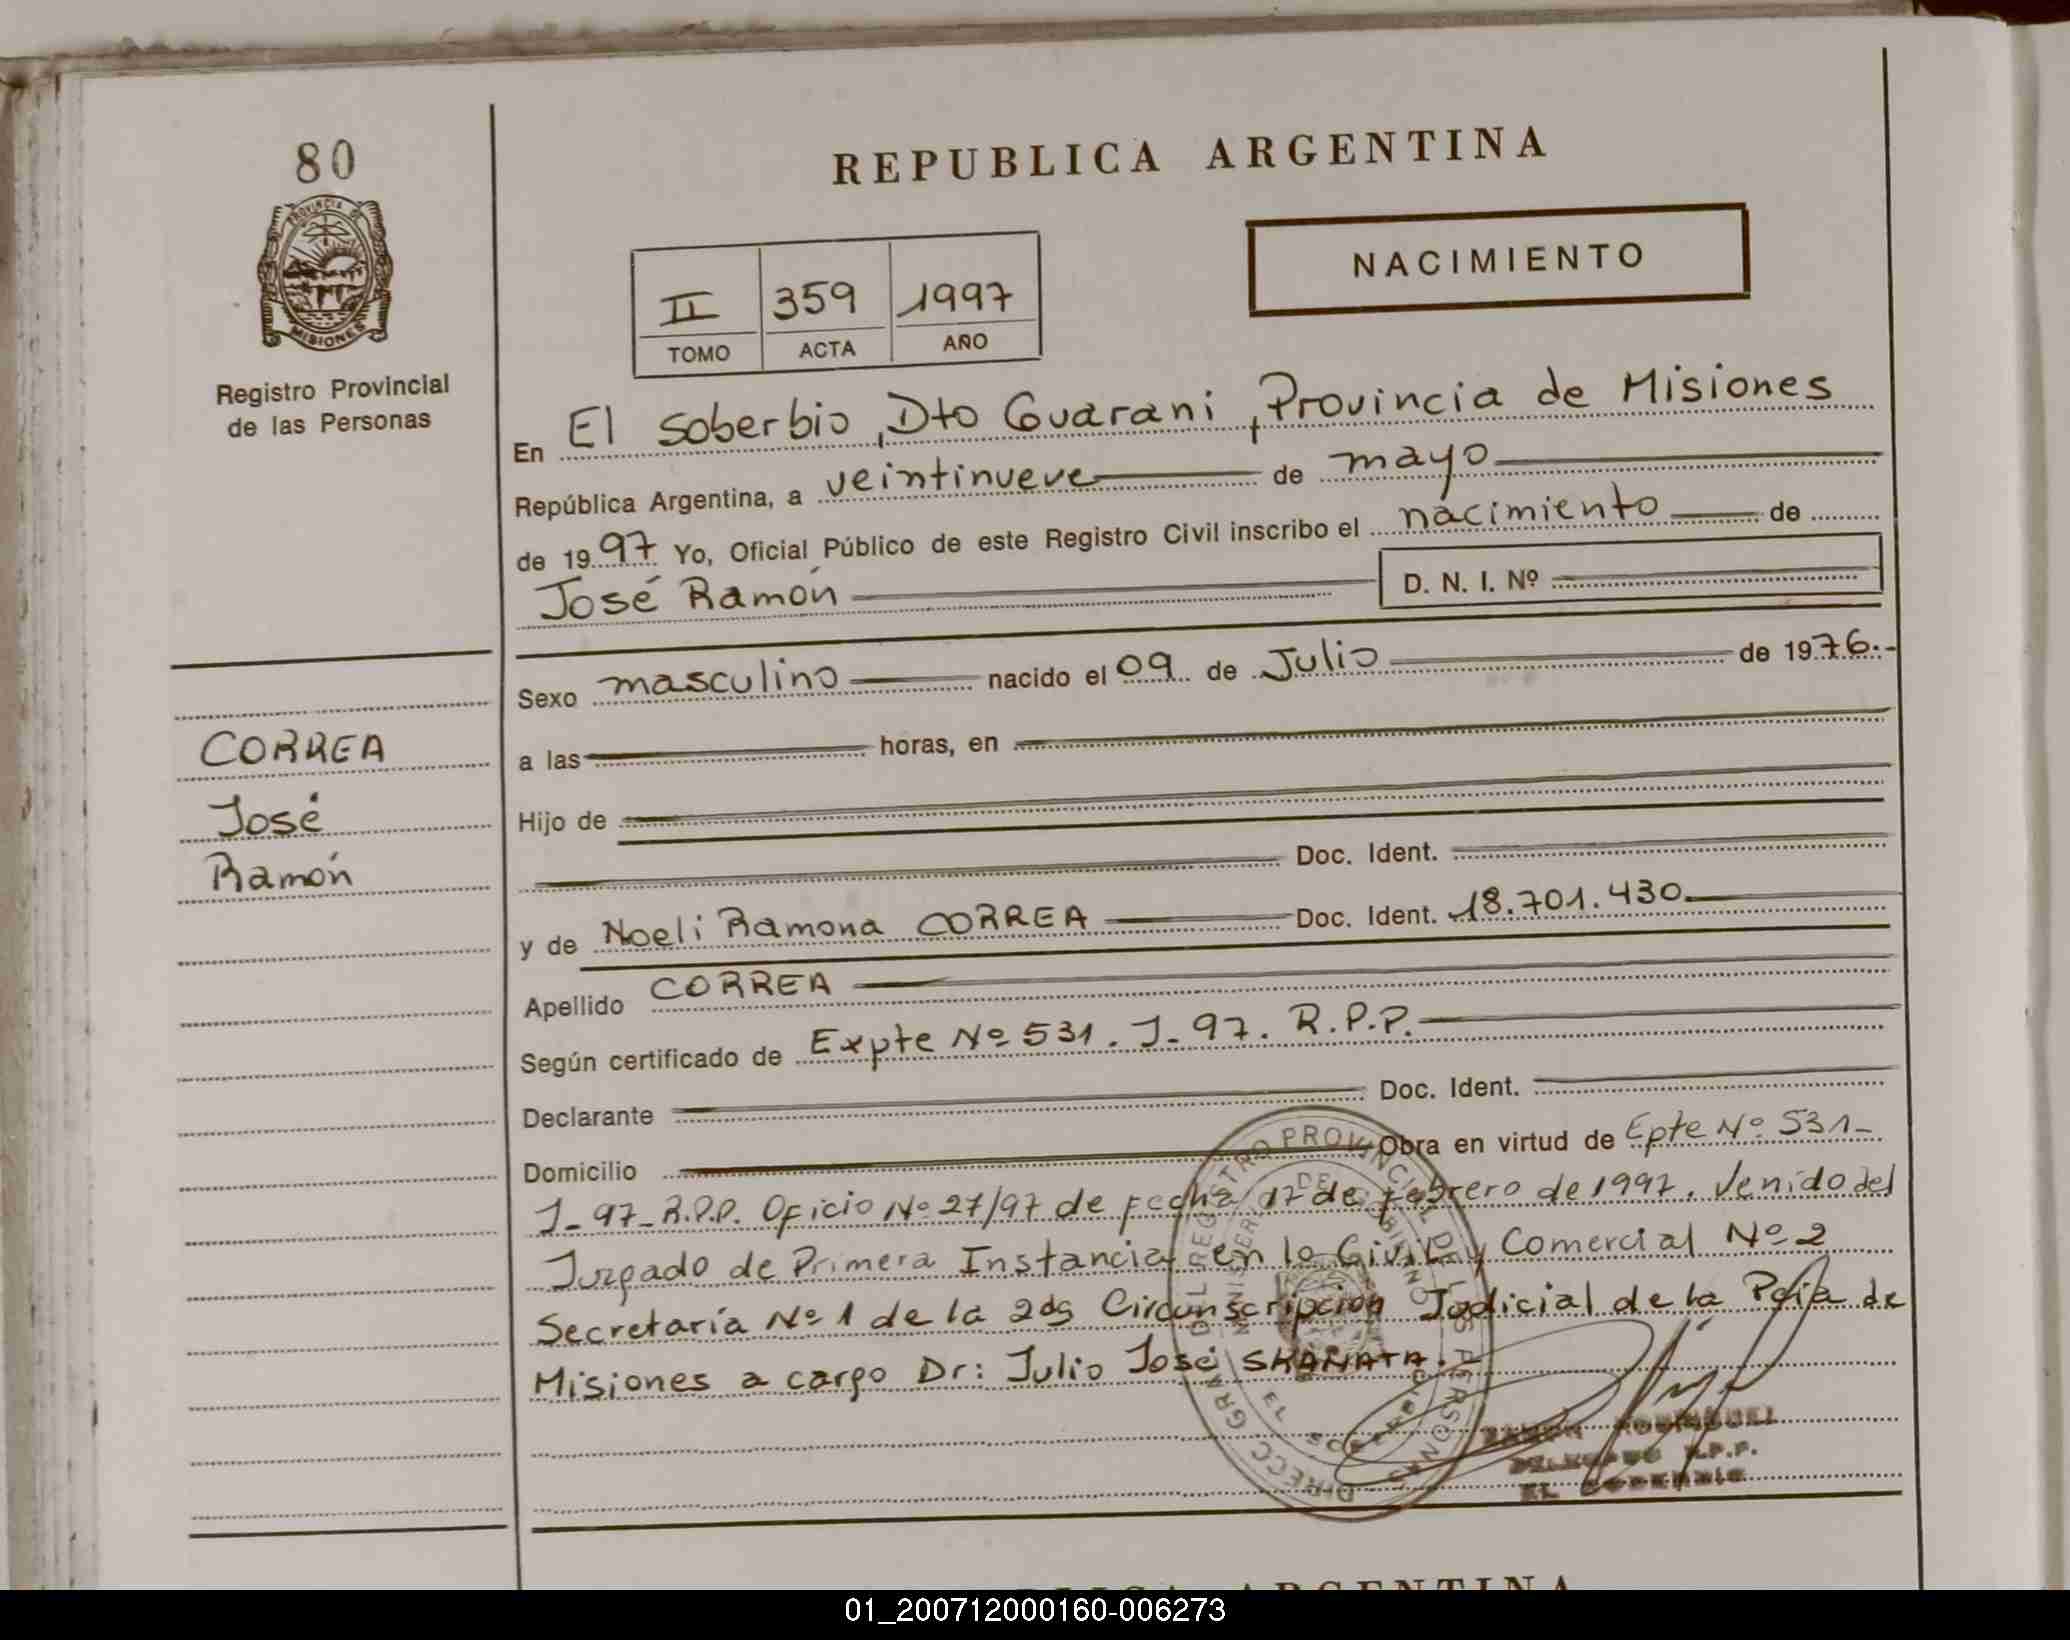 80
PROVINCIA DE
MISIONES
Registro Provincial
de las Personas
REPUBLICA ARGENTINA
NACIMIENTO
II 359 1997
TOMO ACTA AÑO
En El Soberbio, Dto Guarani, Provincia de Misiones
República Argentina, a veintinueve de mayo
de 1997 Yo, Oficial Público de este Registro Civil inscribo el nacimiento de
José Ramón D. N. I. Nº
Sexo masculino nacido el 09 de Julio de 1976.-
a las horas, en
CORREA
José
Ramón
Hijo de
Doc. Ident.
y de Noeli Ramona CORREA Doc. Ident. 18.701.430
Apellido CORREA
Según certificado de Expte Nº 531. J-97. R.P.P.
Declarante Doc. Ident.
Domicilio Obra en virtud de Epte Nº 531-
J-97-R.P.P. Oficio Nº 27/97 de fecha 17 de febrero de 1997. Venido del
Juzgado de Primera Instancia en lo Civil y Comercial Nº 2
Secretaría Nº 1 de la 2da Circunscripción Judicial de la Pcia de
Misiones a cargo Dr: Julio José SKANATA.
DIRECC GRAL DEL REGISTRO PROVINCIAL DE LAS PERSONAS
MINISTERIO DE GOBIERNO
EL SOBERBIO
R.P.P.
EL SOBERBIO
ARGENTINA
01_200712000160-006273